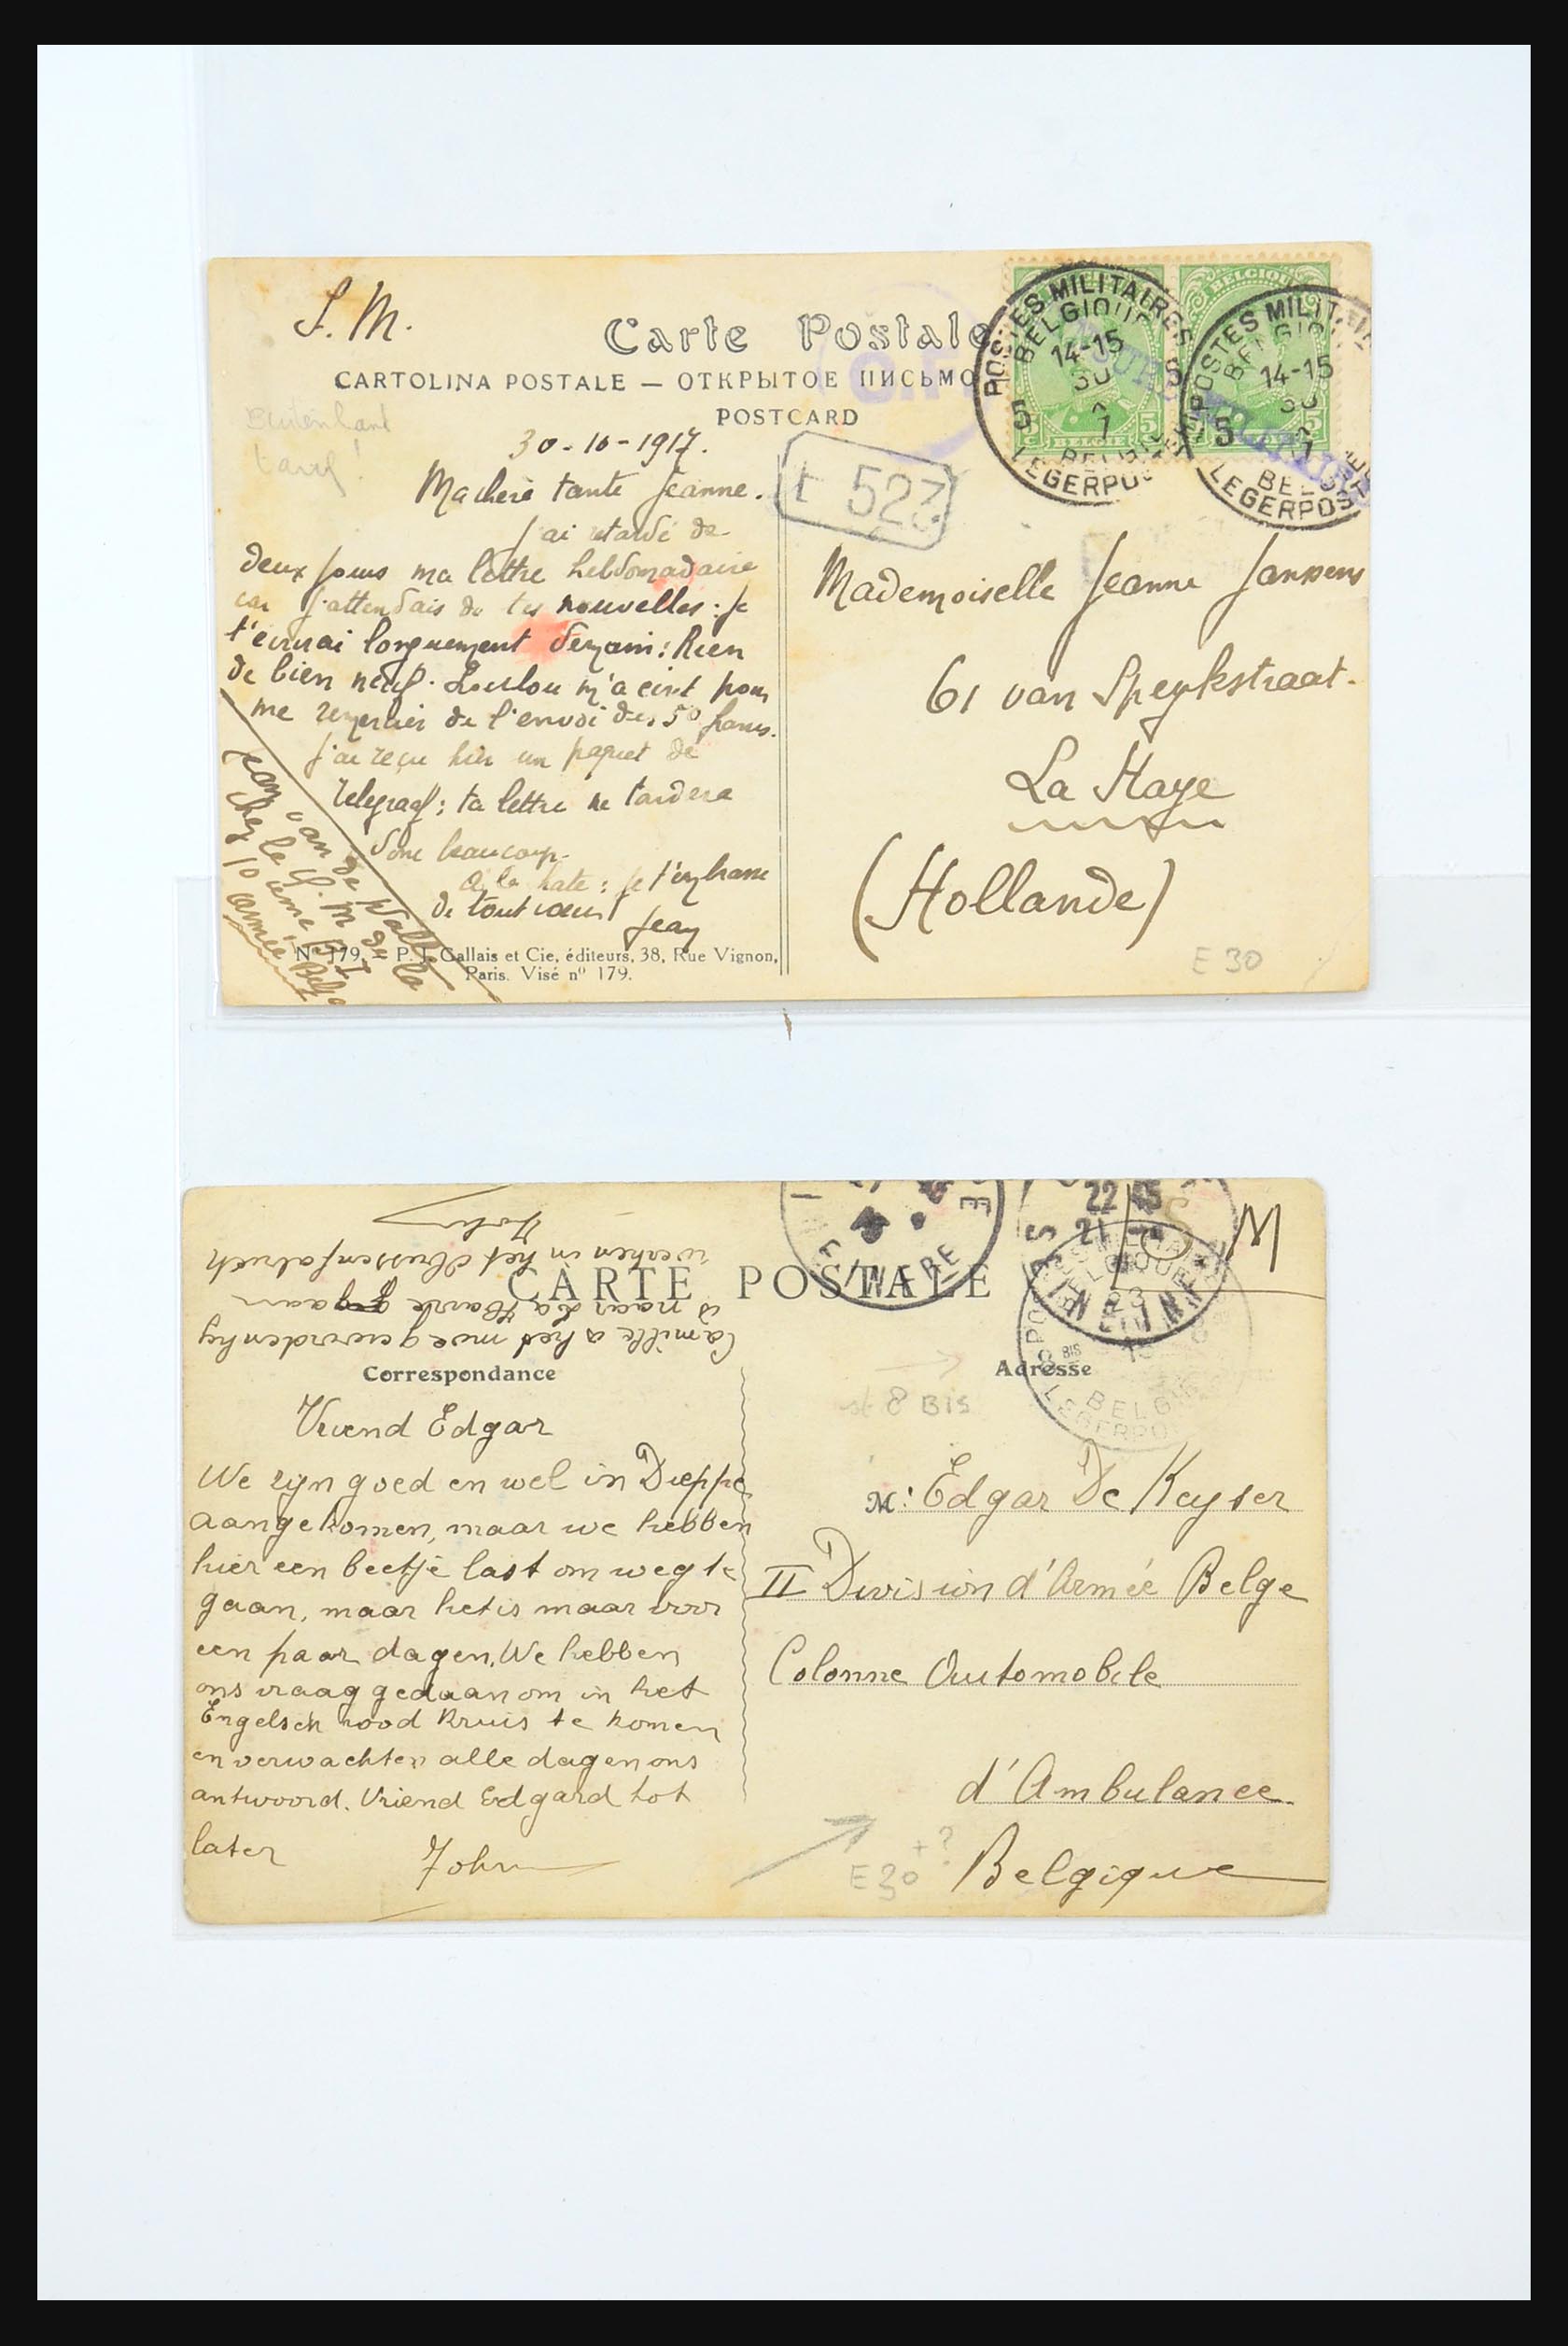 S. M.
Carte Postale
CARTOLINA POSTALE — ОТКРЫТОЕ ПИСЬМО
POSTCARD
POSTES MILITAIRES
BELGIQUE
14-15
30
5
LEGERPOST
POSTES MILIT
14-15
5
BELG
LEGERPOST
BELGIQUE
BELGIE
30-10-1917.
527
Ma chère tante Jeanne.
J'ai retardé de
deux jours ma lettre hebdomadaire
car j'attendais de tes nouvelles : je
t'écrirai longuement demain : Rien
de bien neuf. Loulou m'a écrit pour
me remercier de l'envoi des 50 francs.
J'ai reçu hier un paquet de
Telegraaf ; ta lettre ne tardera
donc beaucoup.
à la hate : je t'embrasse
de tout coeur
Jean
Jean van de Walle
chez le S. M. de la
10 armée Belge
No 179. - P. J. Gallais et Cie, éditeurs, 38, Rue Vignon,
Paris. Visé no 179.
Mademoiselle Jeanne Janssens
61 van Speykstraat.
La Haye
(Hollande)
E 30
S M
22 45
21
CARTE POSTALE
John
werken in het Bussenfabriek
is naar La Havre gaan
Camille is het moe geworden hy
Correspondance
Adresse
8 BIS
BELG
LEGERPO
Vriend Edgar
We zyn goed en wel in Dieppe
aangekomen, maar we hebben
hier een beetje last om weg te
gaan, maar het is maar voor
een paar dagen. We hebben
ons vraag gedaan om in het
Engelsch rood Kruis te komen
en verwachten alle dagen ons
antwoord. Vriend Edgard tot
later
John
M: Edgar De Keyser
II Division d'Armée Belge
Colonne Automobile
d'Ambulance
Belgique
E 30 + ?